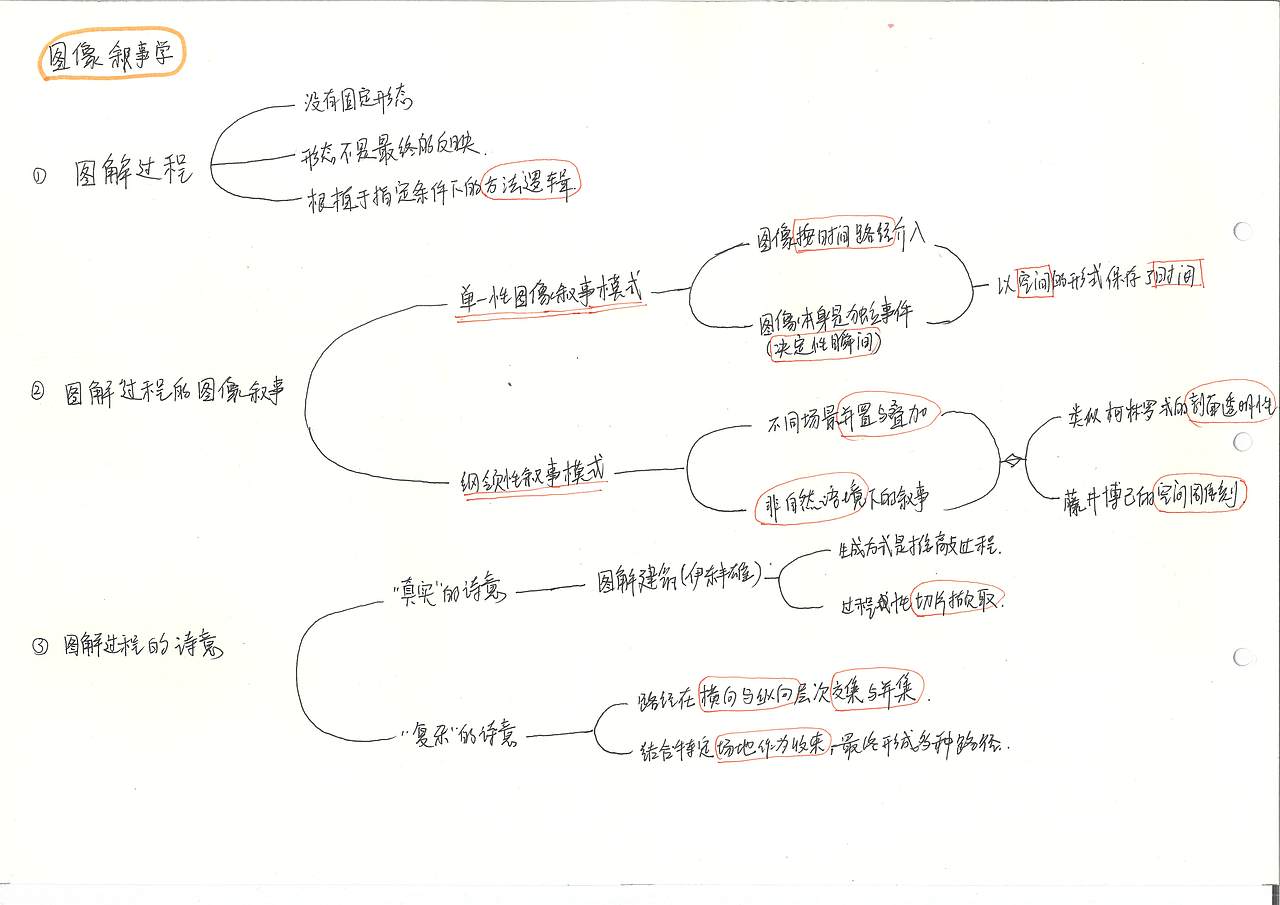 图像叙事学
① 图解过程
没有固定形态
形态不是最终的反映.
根植于指定条件下的方法逻辑.
② 图解过程的图像叙事
单一性图像叙事模式
图像按时间路径介入
图像本身是独立事件
(决定性瞬间)
以空间的形式保存了时间
纲领性叙事模式
不同场景并置与叠加
非自然语境下的叙事
类似柯林罗式的剖面透明性
藤井博巳的空间图底
③ 图解过程的诗意
"真实"的诗意
图解建筑(伊东丰雄)
生成方式是推敲过程.
过程 切片 取.
"复杂"的诗意
路径在横向与纵向层次交集与并集.
结合特定场地作为收束,最终形成多种路径.